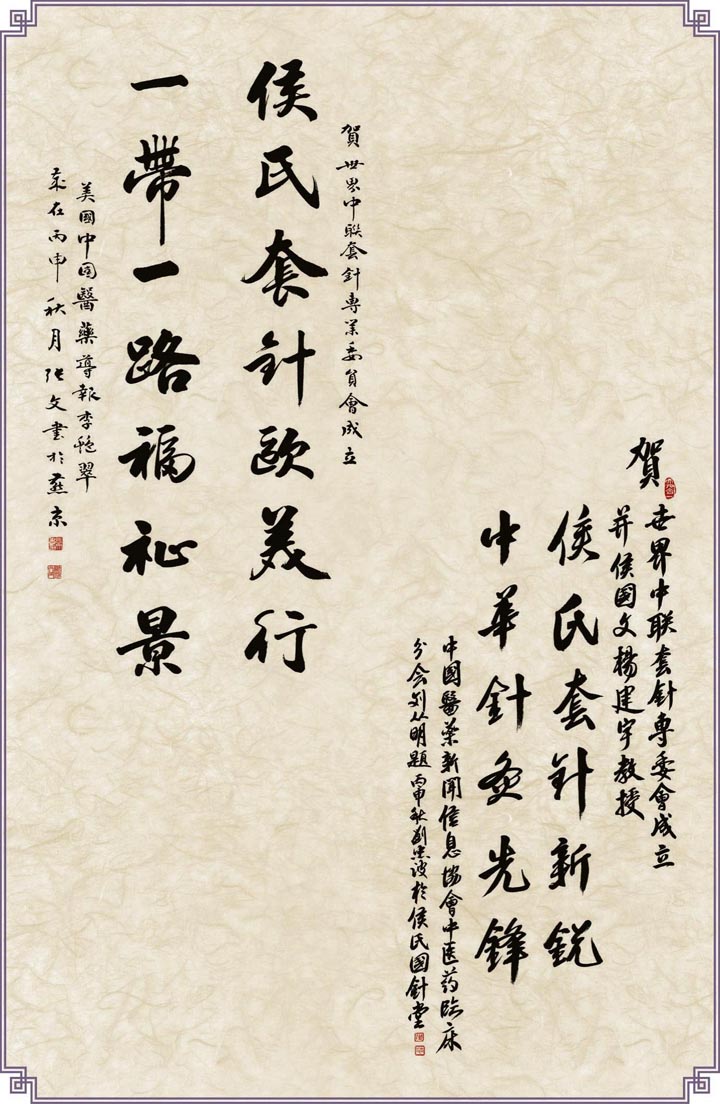 賀
世界中联套針專委會成立
并侯國文楊建宇教授
侯氏套针新銳
中華針灸先鋒
中國醫藥新聞信息協會中医药临床
分会刘从明題丙申秋劉忠波於侯氏國針堂
賀世界中联套針專業委員會成立
侯氏套針歐美行
一帶一路福祉景
美國中国醫藥導報李艳翠
歲在丙申秋月张文書於燕京